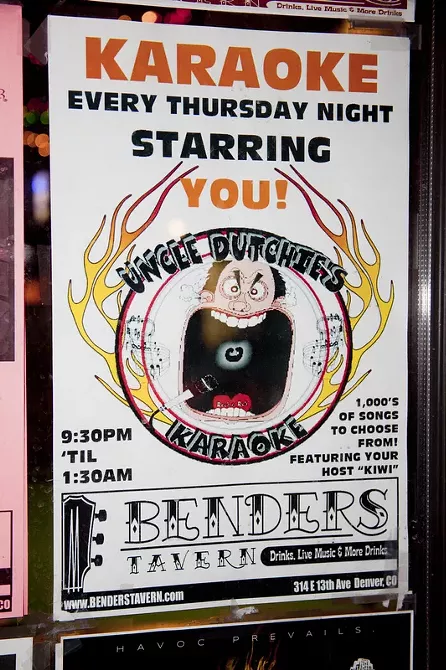 Drinks, Live Music & More Drinks
KARAOKE
EVERY THURSDAY NIGHT
STARRING
YOU!
UNCLE DUTCHIE'S
KARAOKE
9:30PM
'TIL
1:30AM
1,000'S
OF SONGS
TO CHOOSE
FROM!
FEATURING YOUR
HOST "KIWI"
BENDERS
TAVERN
Drinks, Live Music & More Drinks
www.BENDERSTAVERN.com
314 E 13th Ave Denver, CO
CO
HAVOC PREVAILS.